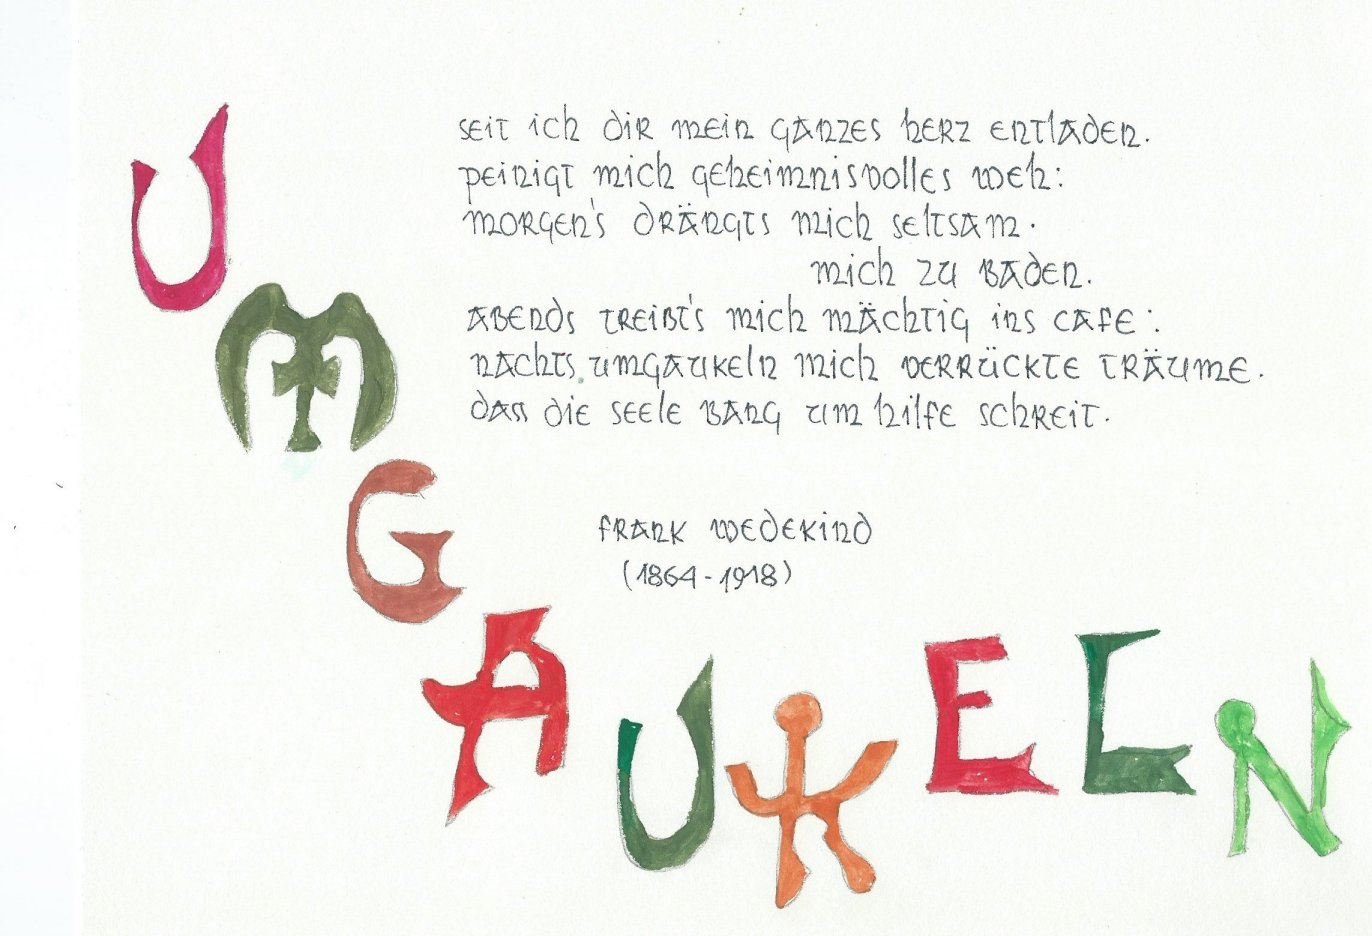 seit ich dir mein ganzes herz entladen.
peinigt mich geheimnisvolles weh:
morgen's drängts mich seltsam.
mich zu baden.
abends treibt's mich mächtig ins cafe:
nachts umgaukeln mich verrückte träume.
dass die seele bang um hilfe schreit.
frank wedekind
(1864-1918)
UMGAUKELN